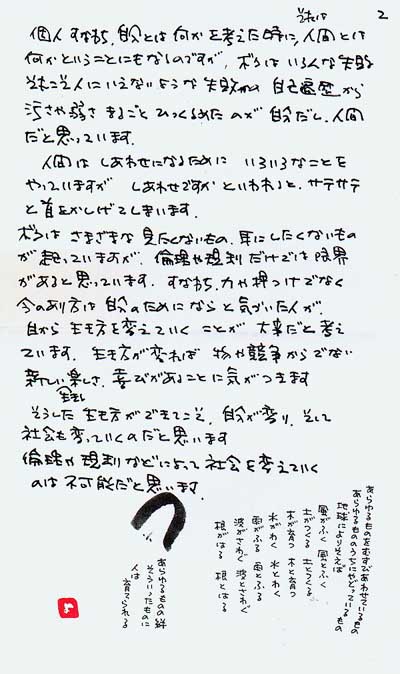 それは
2
個人すなわち、自分とは何かを考えた時に、人間とは
何かということにもなるのですが、ボクはいろんな失敗
それこそ人にいえないような失敗や 自己嫌悪から
汚さや弱さ まるごと ひっくるめたのが 自分だし、人間
だと思っています。
人間は しあわせになるために いろいろなことを
やっていますが しあわせですか といわれると、サテサテ
と首をかしげてしまいます。
ボクは さまざまな 見たくないもの、耳にしたくないもの
が起っていますが、倫理や規則だけでは限界
があると思っています。すなわち、力や押つけでなく
今のあり方は 自分のためにならと気がいた人が、
自から生き方を変えていくことが 大事だと考え
ています。生き方が変れば 物や競争からでない
新しい楽しさ、喜びがあることに気がつきます
そうした 生き方ができてこそ、自分が変り、そして
社会も変っていくのだと思います
倫理や規則などによって社会を変えていく
のは不可能だと思います。
あらゆるものをむすびあわせているもの
あらゆるもののうちにやどっているもの
地球によりそえば
風がふく 風とふく
土がつくる 土とつくる
木が育つ 木と育つ
水がわく 水とわく
雨がふる 雨とふる
波がさわぐ 波とさわぐ
根がはる 根とはる
あらゆるものの絆
そういったものに
人は
育てられる